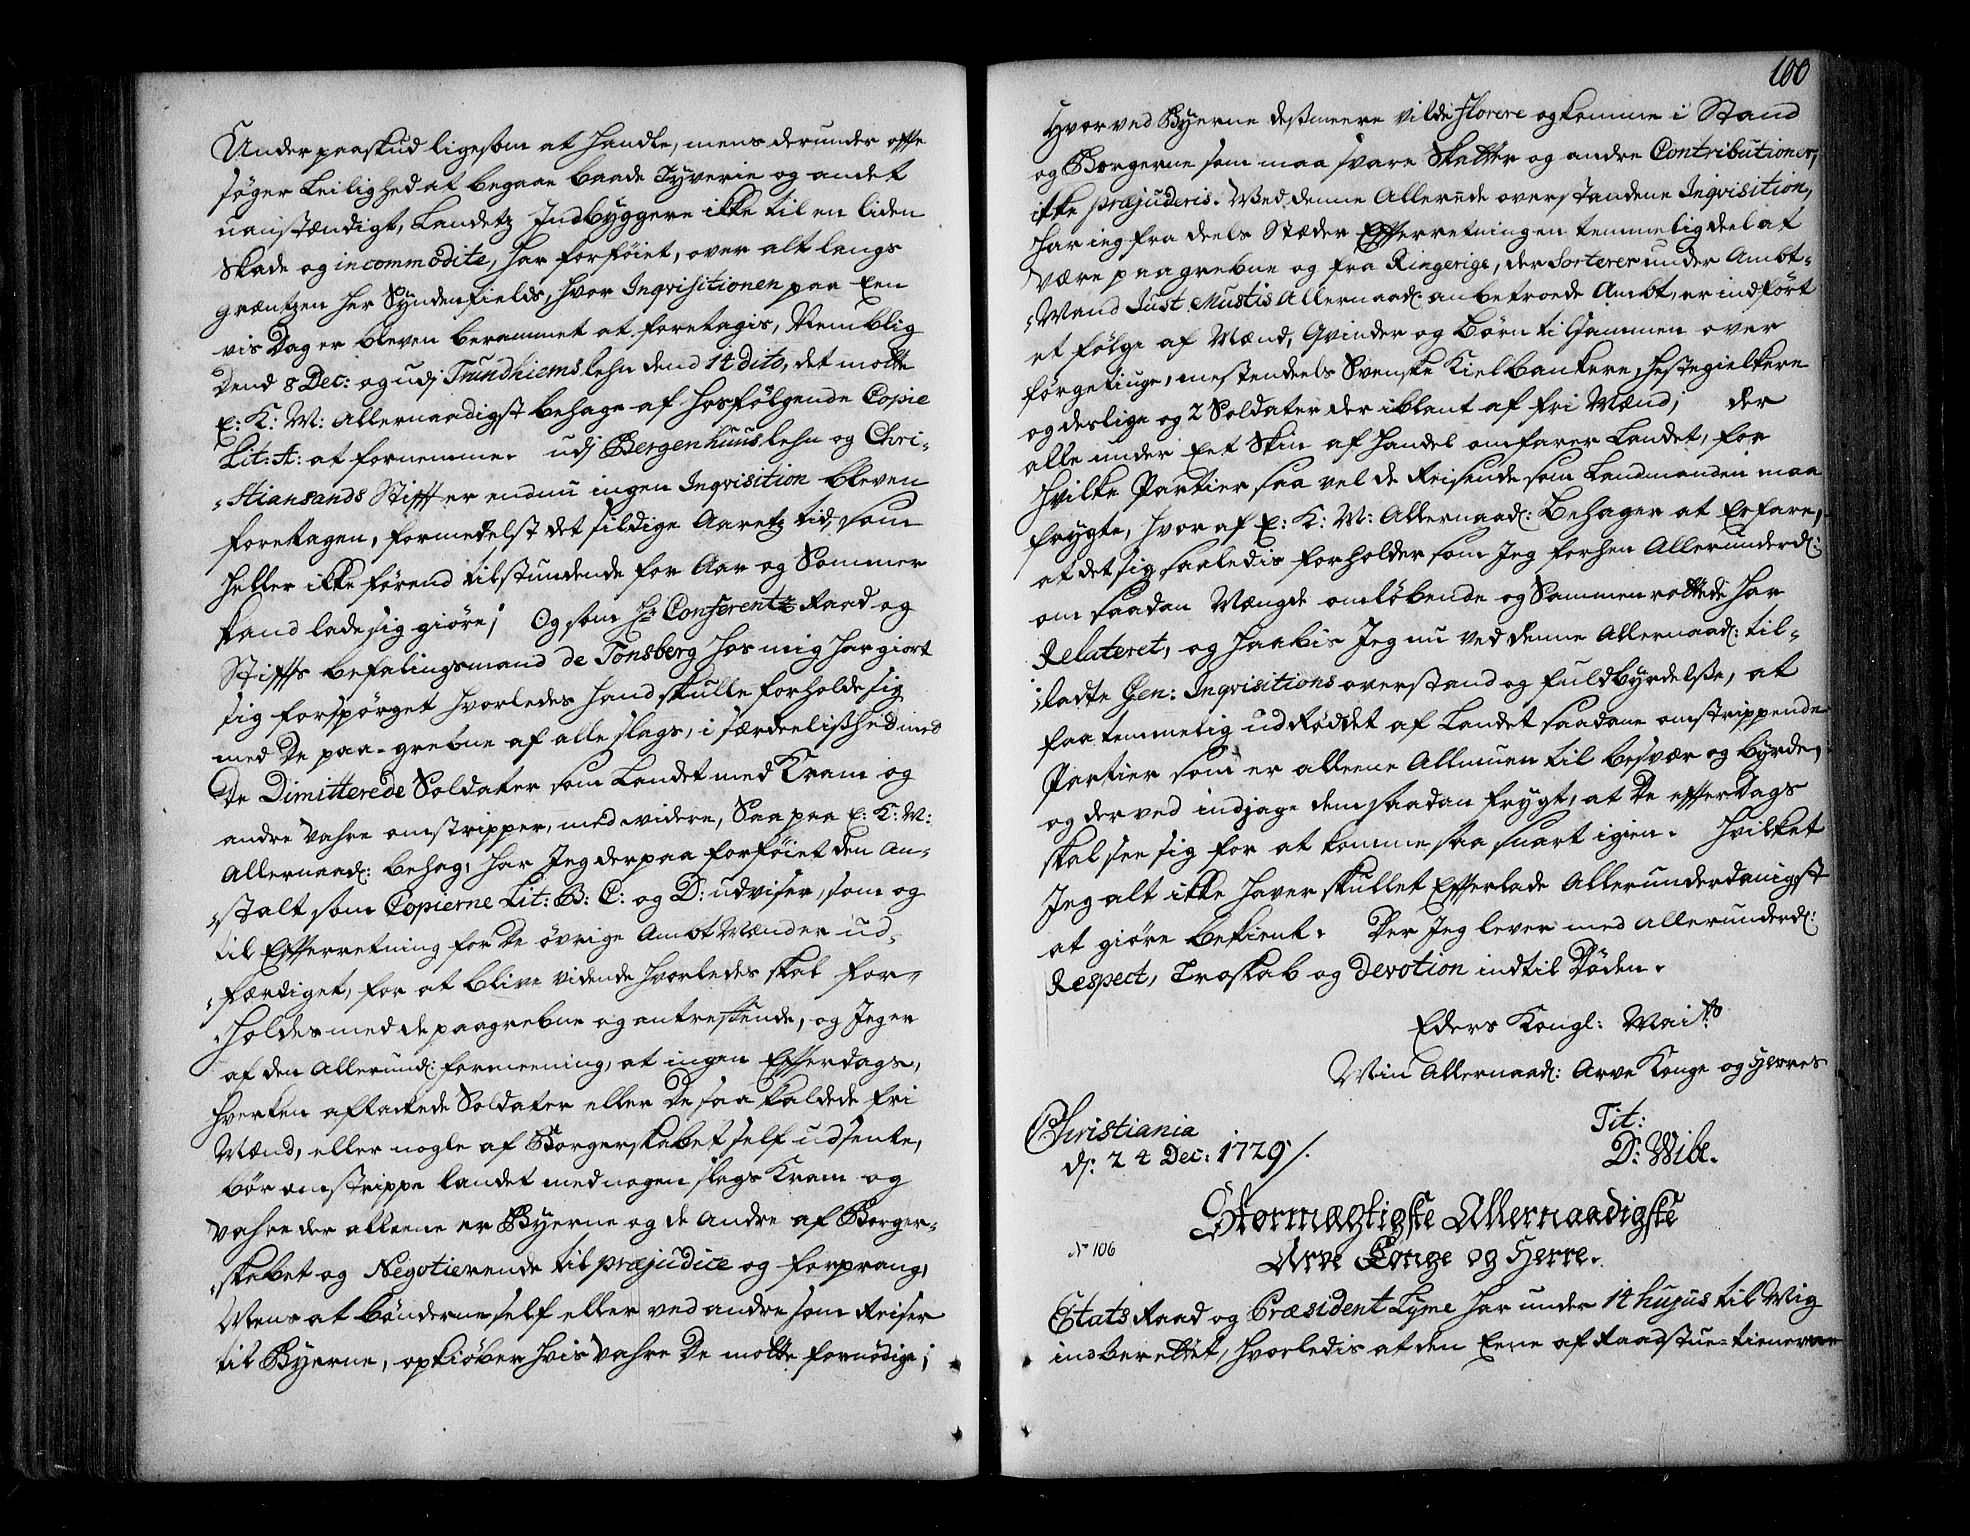 Under paaskud ligesom at handle, mens derunder offte
søger Leilighed at begaae baade Tyverie og andet
uanstændigt, Landetz Indbyggere ikke til en liden
Skade og incommodite, har forføiet, over alt langs
græntzen her Syndenfields, hvor Inqvisitionen paa Een
vis Dag er bleven berammet at foretagis, Nemblig
Dend 8 Dec: og udj Trundhiems lehn dend 14 dito, det motte
E: K: M: Allernaadigst behage af hosfølgende Copie
Lit: A: at fornemme. udj Bergenhuus lehn og Chri-
stiansands Stifft er endnu ingen Inqvisition bleven
foretagen, formedelst det sildige Aaretz tid, som
heller ikke førend tilstundende for Aar og Sommer
kand lade sig giøre; Og som Hr Conferentz Raad og
Stiffts befalingsmand de Tonsberg hos mig har giort
sig forspørget hvorledes hand skulle forholde sig
med De paa-grebne af alle slags, i særdeelished med
De Dimitterede Soldater som Landet med Kram og
andre vahre omstripper, med widere, Saa paa E: K: M:
Allernaad: behag, har Jeg derpaa forføiet den An-
stalt som Copierne Lit: B: C: og D: udviser, som og
til Efferretning for De øvrige AmbtMænder ud-
færdiget, for at blive vidende hvorledes skal for-
holdes med de paagrebne og antreffende, og Jeg er
af den Allerund: formeening, at ingen Efferdags,
hverken aftackede Soldater eller De saa kaldede fri
Mænd, eller nogle af Borgerskabet self udsente,
bør omstrippe landet med nogen slags Kram og
vahre der alleene er Byerne og de andre af Borger-
skabet og Negotierende til præjudice og forprang,
Mens at bønderne self eller ved andre som Reiser
til Byerne, opkiøber hvis vahre De motte fornødige;
100
Hvorved Byerne destmeere vilde florere og komme i Stand
og Borgerne som maa svare Skatter og andre Contributioner,
ikke præjuderis. Med denne Allerede overstandene Inqvisition,
har ieg fra deels Stæder Efferretning en temmelig deel at
være paagrebne og fra Ringerige, der Sorterer under Ambt-
Mand Just. Mustis Allernaad: anbetroede Ambt, er indført
et følge af Mænd, Qvinder og børn tilsammen over
førgetiuge, mestendeels Svenske Kielbankere, hestegielkere
og deslige og 2 Soldater der iblant af fri Mænd; der
alle under Eet Skin af handel omfarer Landet, for
hvilke Partier saa vel de Reisende som Landmanden maa
frygte, hvoraf E: K: M: Allernaad: Behager at Erfare,
at det sig saaledis forholder som Jeg forhen Allerunderd:
om saadan Mængde omløbende og Sammenrottede har
Relateret, og haabis Jeg nu ved denne Allernaad: til-
ladte Gen: Inqvisitions overstand og fuldbyrdelse, at
faa temmelig udRøddet af Landet saadane omstrippende
Partier som er alleene Allmuen til besvær og byrde,
og der ved indjage dem saadan frygt, at De efferdags
skal see sig for at komme saa snart igien. Hvilket
Jeg alt ikke haver skullet Efferlade Allerunderdanigst
at giøre bekient. Der Jeg lever med Allerunderd:
Respect, Troskab og Devotion indtil Døden.
Eders Kongl: Mai:ts
Min Allernaad: Arve Konge og Herres
Christiania
d: 24 Dec: 1729 /.
Tit:
D: Wibe.
Stormægtigste Allernaadigste
No 106
Arve Konge og Herre.
Etats Raad og Præsident Lyme har under 14 hujus til Mig
indberettet, hvorledis at den Eene af Raadstue-tienerne